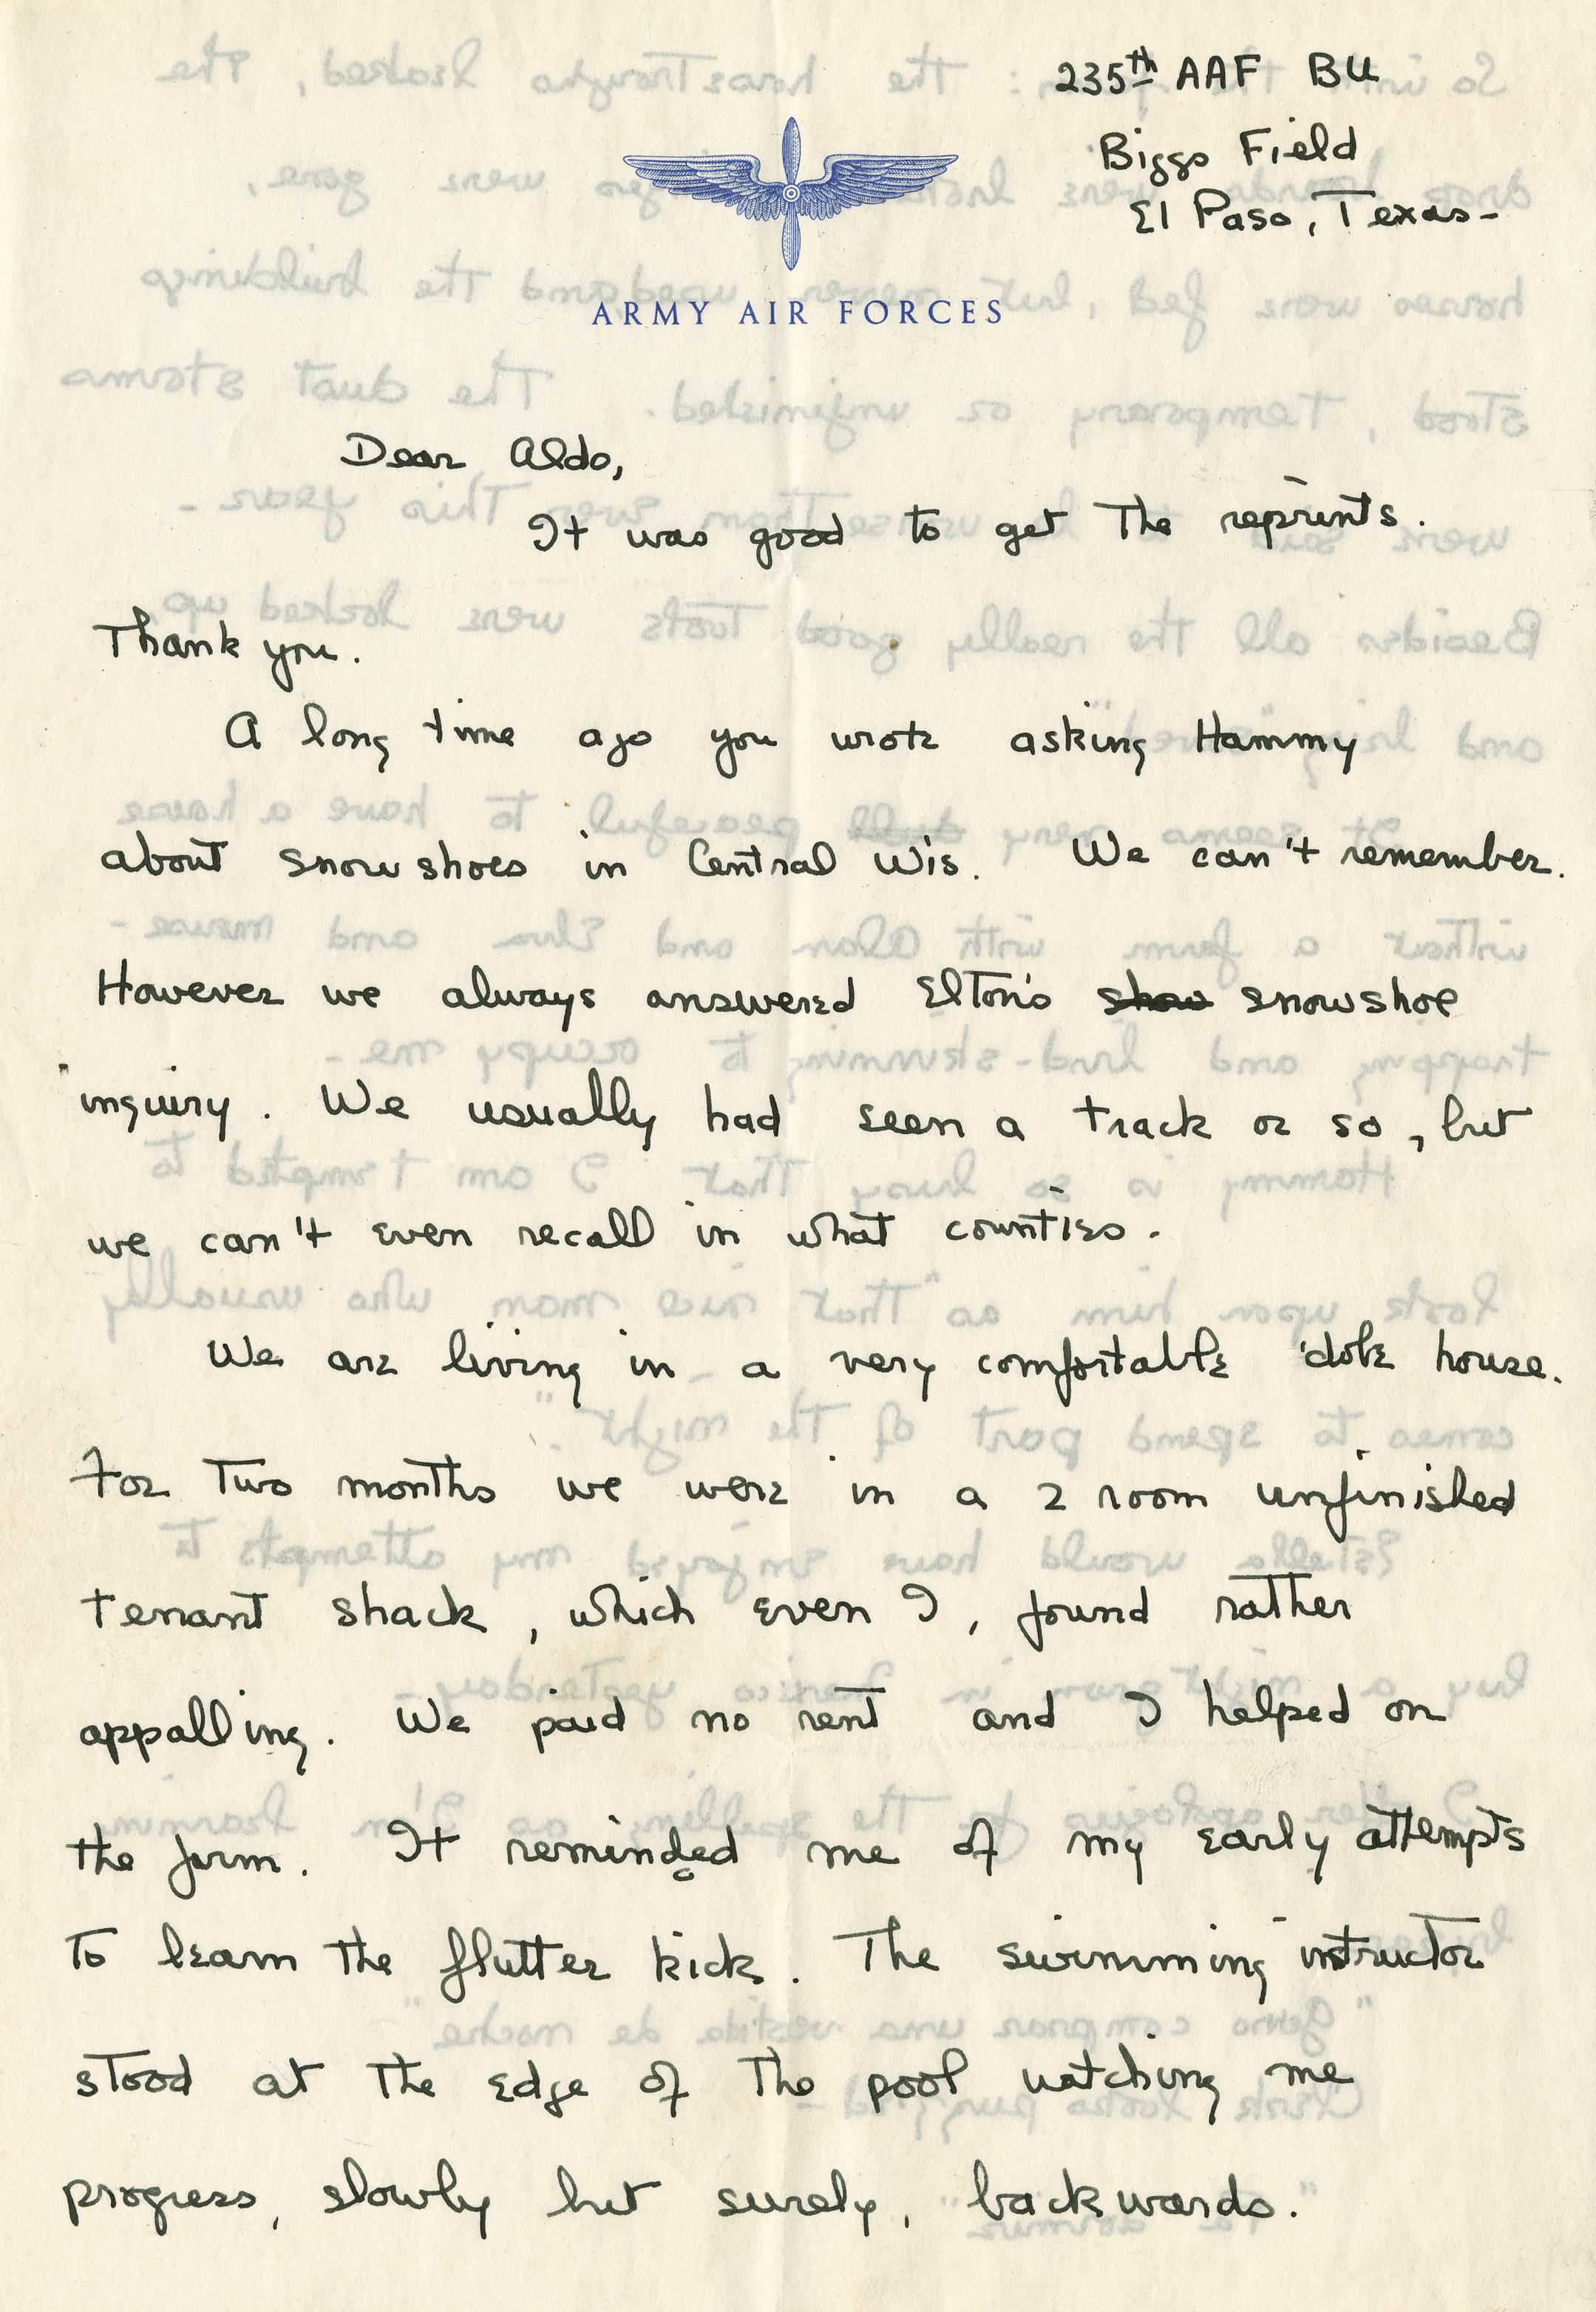 235th AAF BU
Biggs Field
El Paso, Texas-
ARMY AIR FORCES
Dear Aldo,
It was good to get the reprints.
Thank you.
A long time ago you wrote asking Hammy
about snowshoes in Central Wis. We can't remember.
However we always answered Elton's show snowshoe
inquiry. We usually had seen a track or so, but
we can't even recall in what counties.
We are living in a very comfortable 'dobe house.
For two months we were in a 2 room unfinished
tenant shack, which even I, found rather
appalling. We paid no rent and I helped on
the farm. It reminded me of my early attempts
to learn the flutter kick. The swimming instructor
stood at the edge of the pool watching me
progress, slowly but surely, backwards."